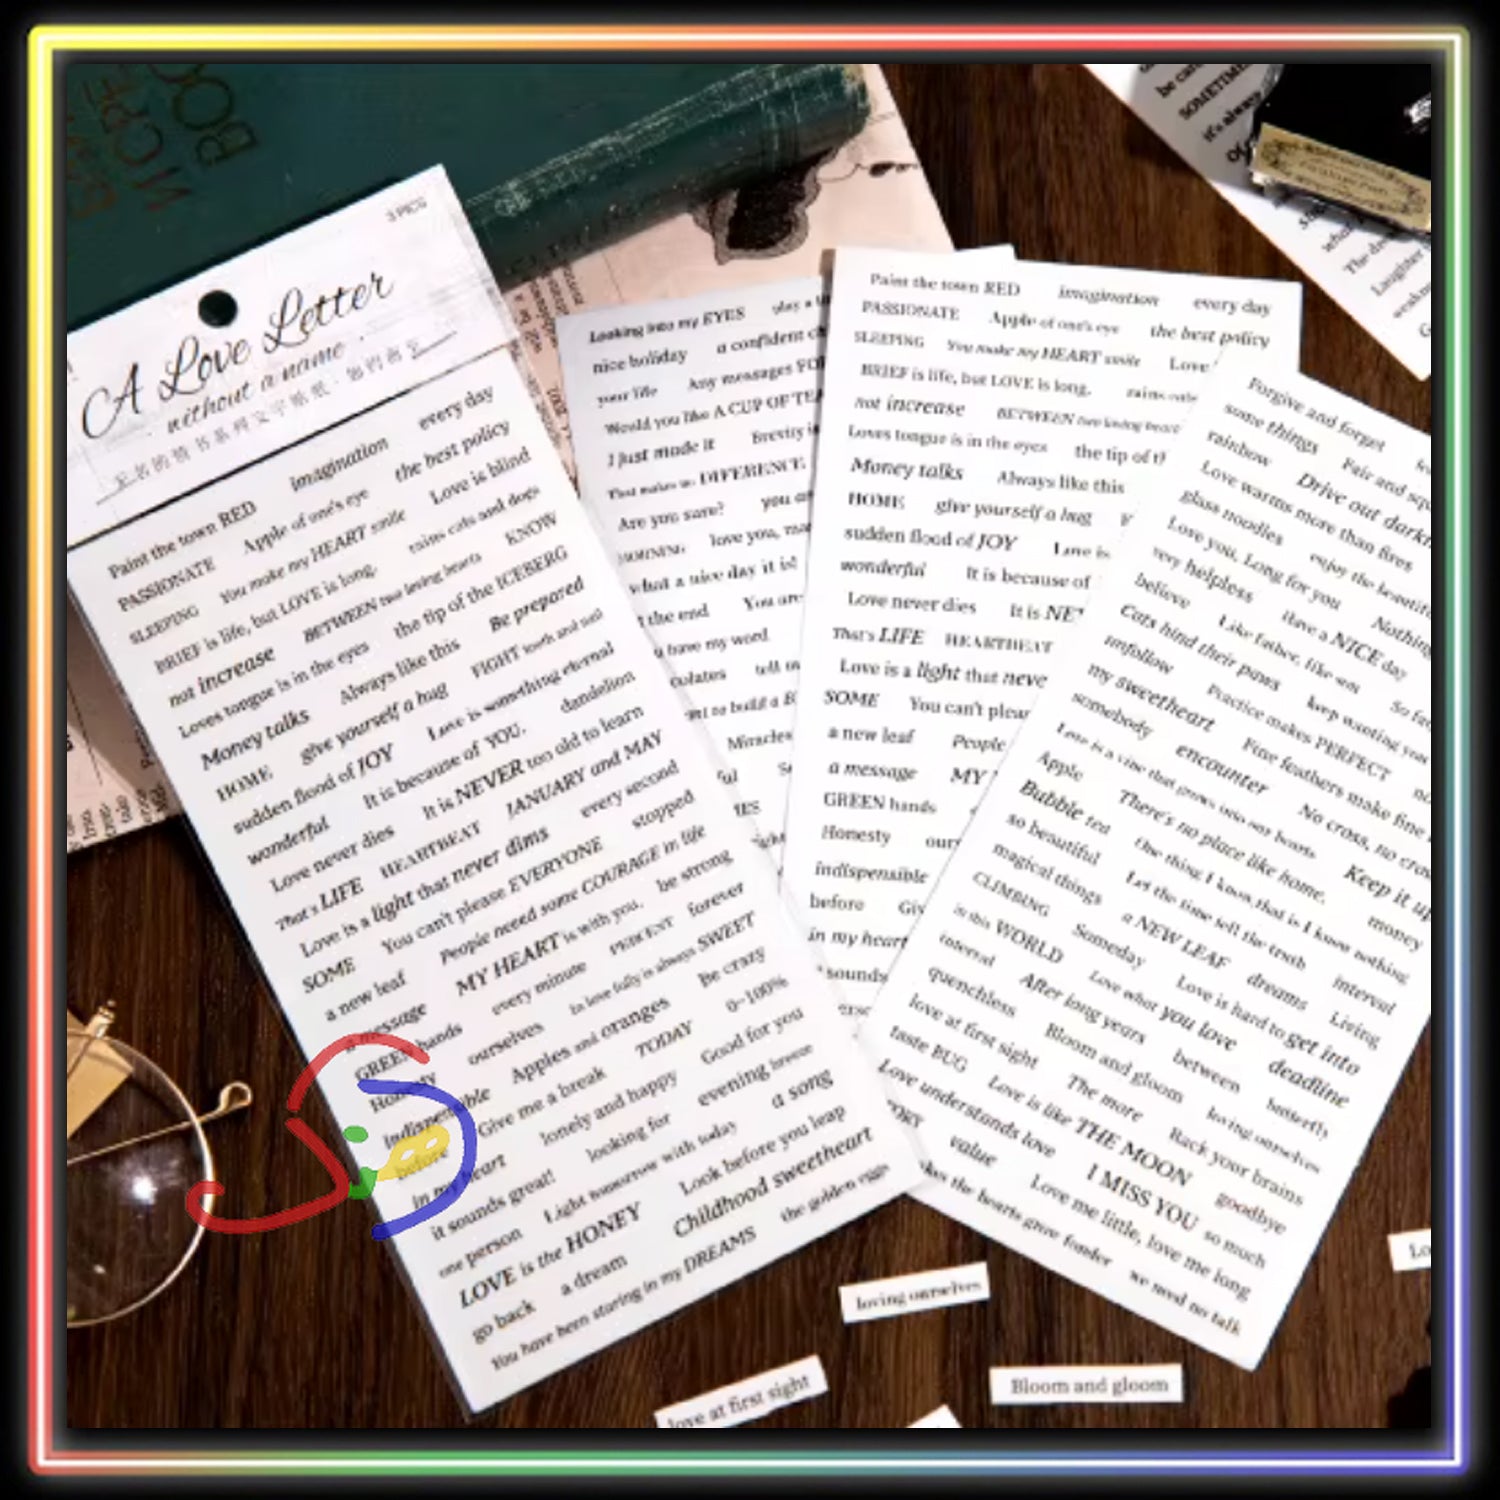 3 PICS
A Love Letter
without a name
无名的情书系列文字贴纸
Paint the town RED imagination every day
PASSIONATE Apple of one's eye the best policy
SLEEPING You make my HEART smile Love is blind
BRIEF is life, but LOVE is long. rains cats and dogs
not increase BETWEEN two loving hearts KNOW
Loves tongue is in the eyes the tip of the ICEBERG
Money talks Always like this Be prepared
HOME give yourself a hug FIGHT tooth and nail
sudden flood of JOY Love is something eternal
wonderful It is because of YOU. dandelion
Love never dies It is NEVER too old to learn
That's LIFE HEARTBEAT JANUARY and MAY
Love is a light that never dims every second
SOME You can't please EVERYONE stopped
a new leaf People need some COURAGE in life
a message MY HEART is with you. be strong
GREEN hands every minute PERCENT forever
Honesty ourselves In love folly is always SWEET
indispensable Apples and oranges Be crazy
before Give me a break TODAY 0~100%
in my heart lonely and happy Good for you
it sounds great! looking for evening breeze
one person Light tomorrow with today a song
LOVE is the HONEY Look before you leap
go back a dream Childhood sweetheart
You have been staring in my DREAMS the golden eggs
Looking into my EYES play a
nice holiday a confident
your life Any messages FOR
Would you like A CUP OF TEA
I just made it Brevity is
That makes no DIFERENCE
Are you sure? you are
MORNING love you,
what a nice day it is!
the end You are
have my word
tell
to build a
Miracles
Paint the town RED imagination every day
PASSIONATE Apple of one's eye the best policy
SLEEPING You make my HEART smile Love
BRIEF is life, but LOVE is long. rains cats
not increase BETWEEN two loving hearts
Loves tongue is in the eyes the tip of
Money talks Always like this
HOME give yourself a hug
sudden flood of JOY Love is
wonderful It is because of
Love never dies It is
That's LIFE HEARTBEAT
Love is a light that never
SOME You can't please
a new leaf People
a message MY
GREEN hands
Honesty
indispensable
before
in my heart
sounds
Forgive and forget
some things Fair and
rainbow Drive out
Love warms more than fires
glass noodles enjoy the
Love you, Long for you Nothing
very helpless Have a NICE day
believe Like father, like son So far
Cats hind their paws keep wanting
unfollow Practice makes PERFECT
my sweetheart Fine feathers make fine
somebody encounter No cross, no
Love is a vine that grows into our hearts
Apple There's no place like home. Keep it up
Bubble tea One thing I know, that is I know nothing
so beautiful Let the time tell the truth money
magical things a NEW LEAF dreams interval
CLIMBING Someday Love is hard to get into Living
in this WORLD Love what you love deadline
interval After long years between butterfly
quenchless Bloom and gloom loving ourselves
love at first sight The more Rack your brains
taste BUG Love is like THE MOON goodbye
Love understands love I MISS YOU so much
value Love me little, love me long
the hearts grow fonder we need no talk
SOMETIMES
it's always
Laughter
loving ourselves
love at first sight
Bloom and gloom